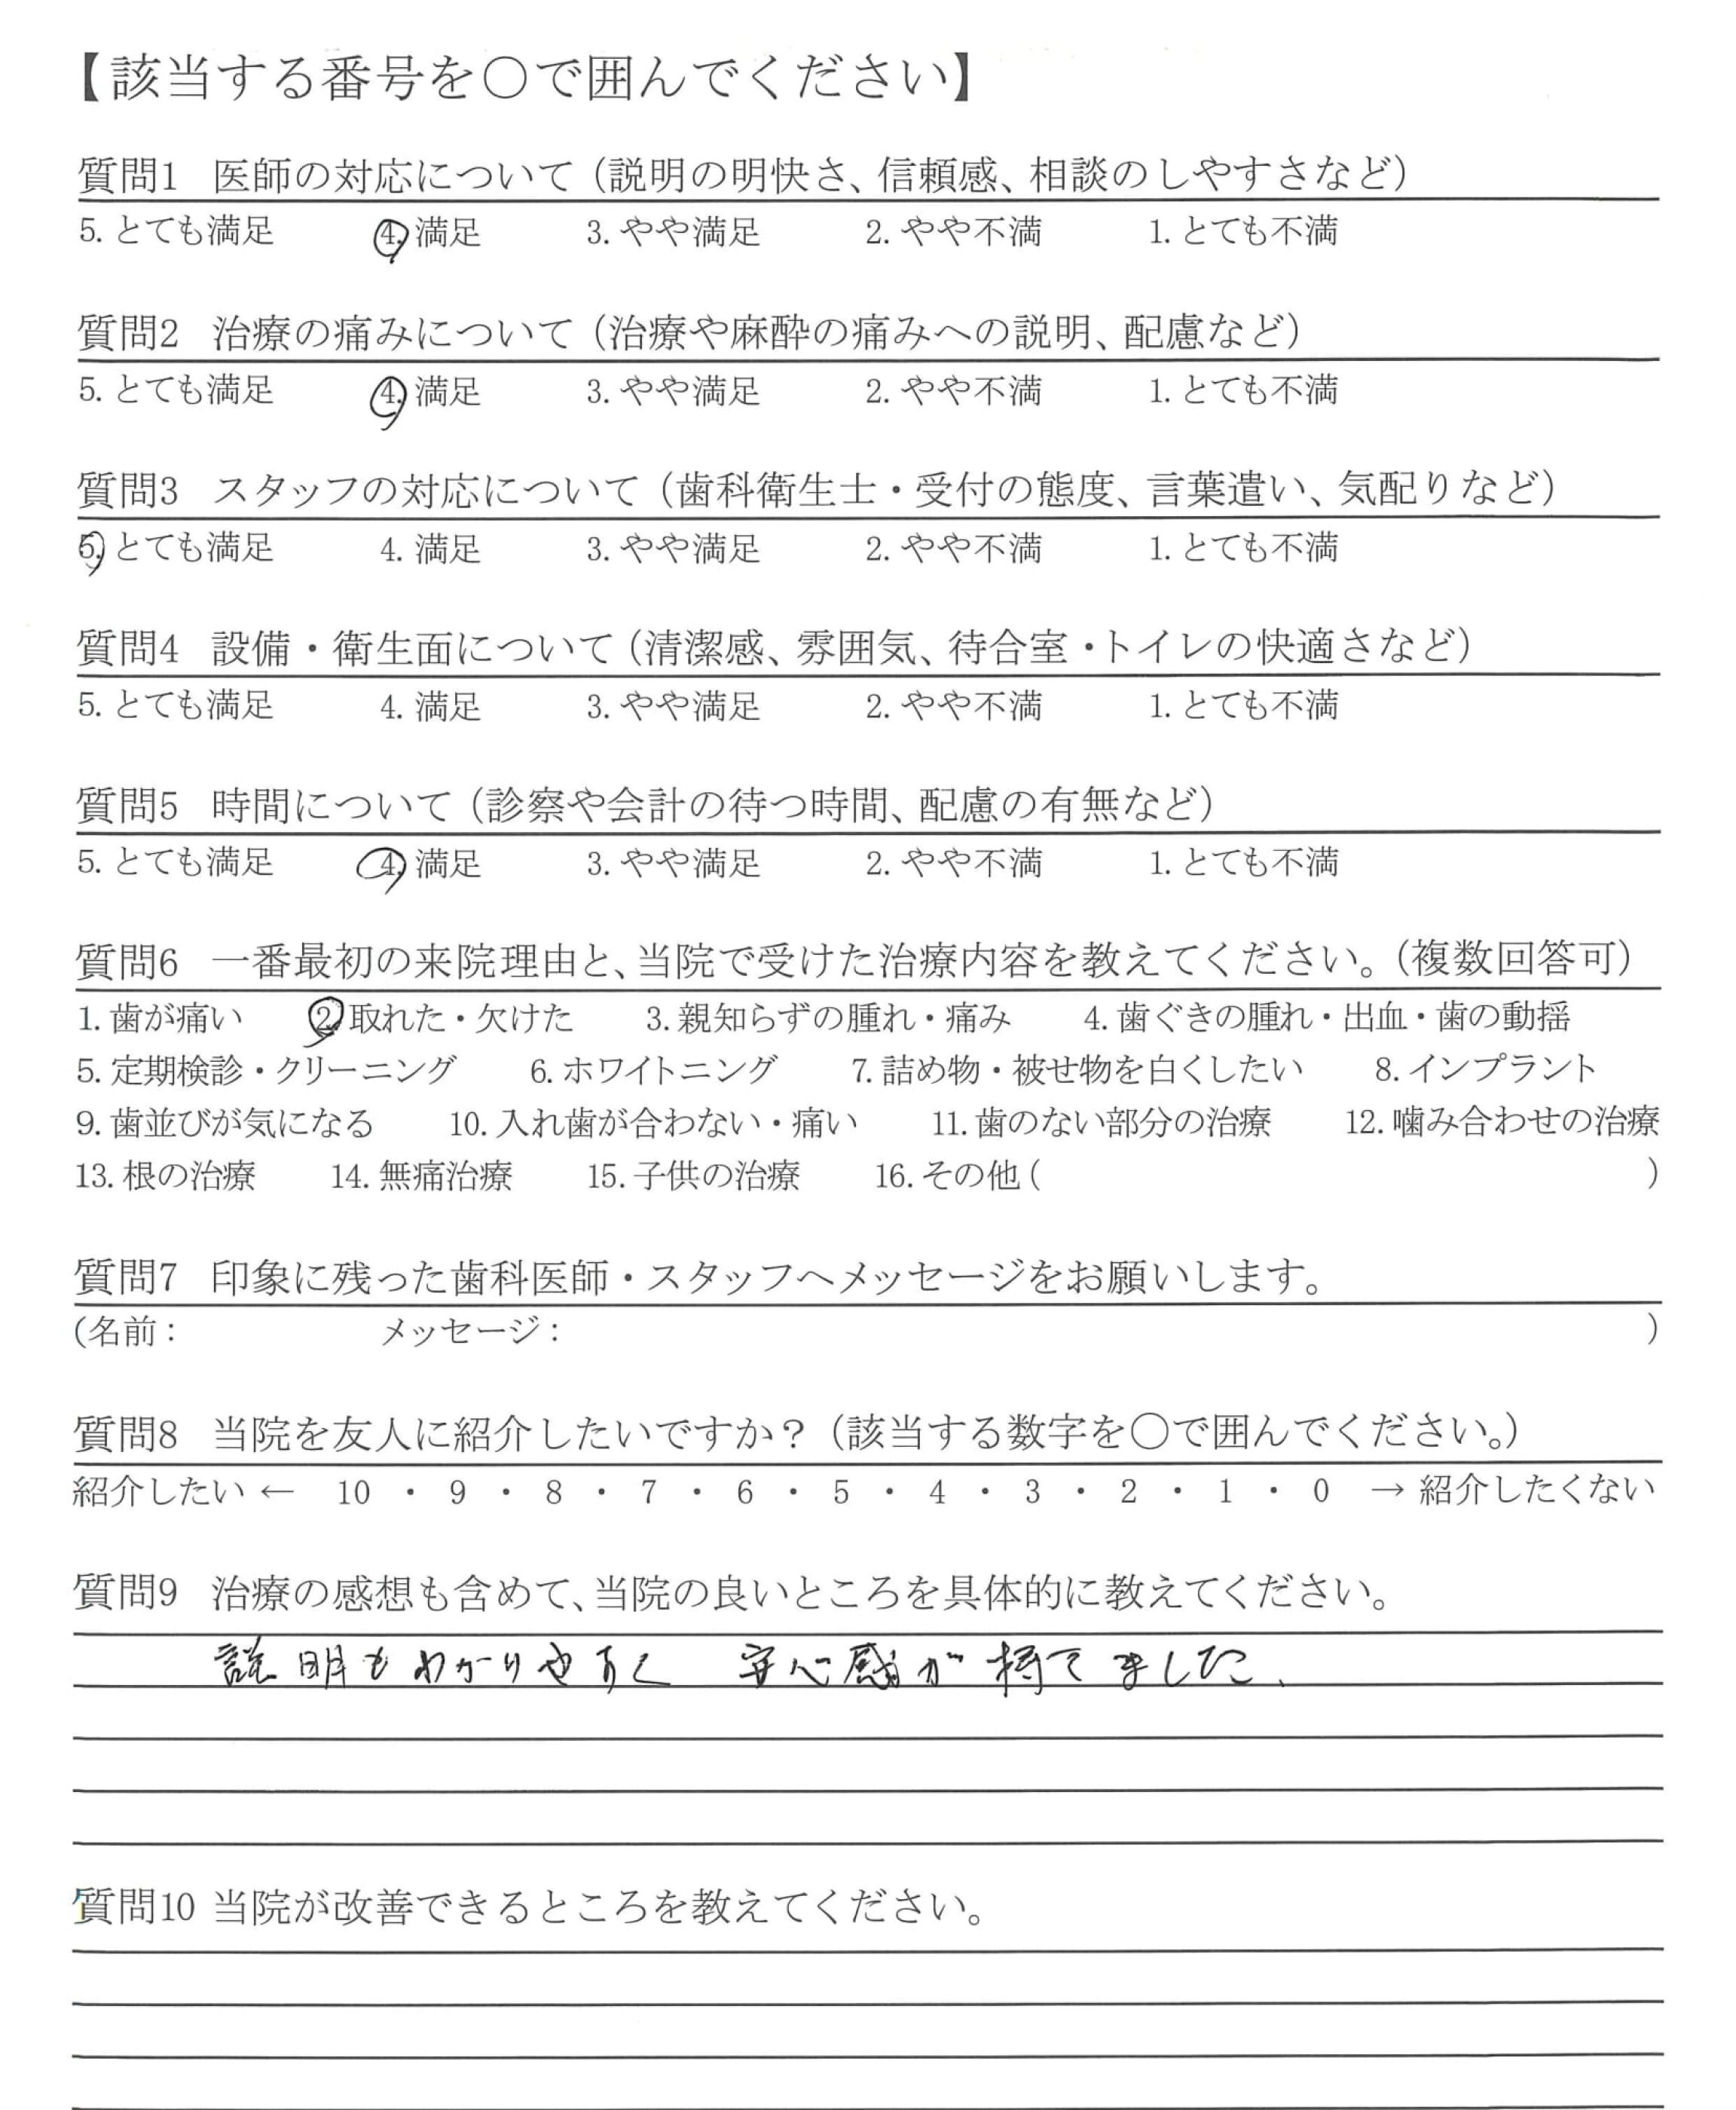 【該当する番号を○で囲んでください】
質問1 医師の対応について（説明の明快さ、信頼感、相談のしやすさなど）
5. とても満足 4. 満足 3. やや満足 2. やや不満 1. とても不満
質問2 治療の痛みについて（治療や麻酔の痛みへの説明、配慮など）
5. とても満足 4. 満足 3. やや満足 2. やや不満 1. とても不満
質問3 スタッフの対応について（歯科衛生士・受付の態度、言葉遣い、気配りなど）
5. とても満足 4. 満足 3. やや満足 2. やや不満 1. とても不満
質問4 設備・衛生面について（清潔感、雰囲気、待合室・トイレの快適さなど）
5. とても満足 4. 満足 3. やや満足 2. やや不満 1. とても不満
質問5 時間について（診察や会計の待つ時間、配慮の有無など）
5. とても満足 4. 満足 3. やや満足 2. やや不満 1. とても不満
質問6 一番最初の来院理由と、当院で受けた治療内容を教えてください。（複数回答可）
1. 歯が痛い 2. 取れた・欠けた 3. 親知らずの腫れ・痛み 4. 歯ぐきの腫れ・出血・歯の動揺
5. 定期検診・クリーニング 6. ホワイトニング 7. 詰め物・被せ物を白くしたい 8. インプラント
9. 歯並びが気になる 10. 入れ歯が合わない・痛い 11. 歯のない部分の治療 12. 噛み合わせの治療
13. 根の治療 14. 無痛治療 15. 子供の治療 16. その他（ ）
質問7 印象に残った歯科医師・スタッフへメッセージをお願いします。
（名前： メッセージ： ）
質問8 当院を友人に紹介したいですか？（該当する数字を○で囲んでください。）
紹介したい ← 10 ・ 9 ・ 8 ・ 7 ・ 6 ・ 5 ・ 4 ・ 3 ・ 2 ・ 1 ・ 0 → 紹介したくない
質問9 治療の感想も含めて、当院の良いところを具体的に教えてください。
説明もわかりやすく 安心感が持てました、
質問10 当院が改善できるところを教えてください。